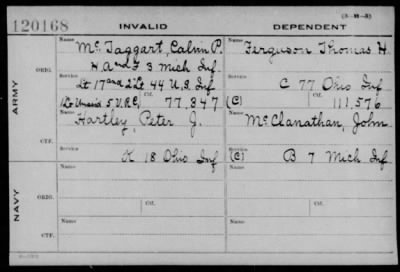 (3-M-3)
120168 INVALID DEPENDENT
ARMY
ORIG.
Name Mc Taggart, Calvin P. Name Ferguson Thomas H.
H. and F 3 Mich Inf
Service Lt 17 and 2 Lt 44 U.S. Inf Service C 77 Ohio Inf
(Lt Unasid 5 V.R.C.) Ctf. 77,347 (C) Ctf. 111,576
CTF.
Name Hartley, Peter J. Name McClanathan, John
Service K 18 Ohio Inf Service (C) B 7 Mich Inf
NAVY
ORIG.
Name Name
Service Ctf. Service Ctf.
CTF.
Name Name
Service Service